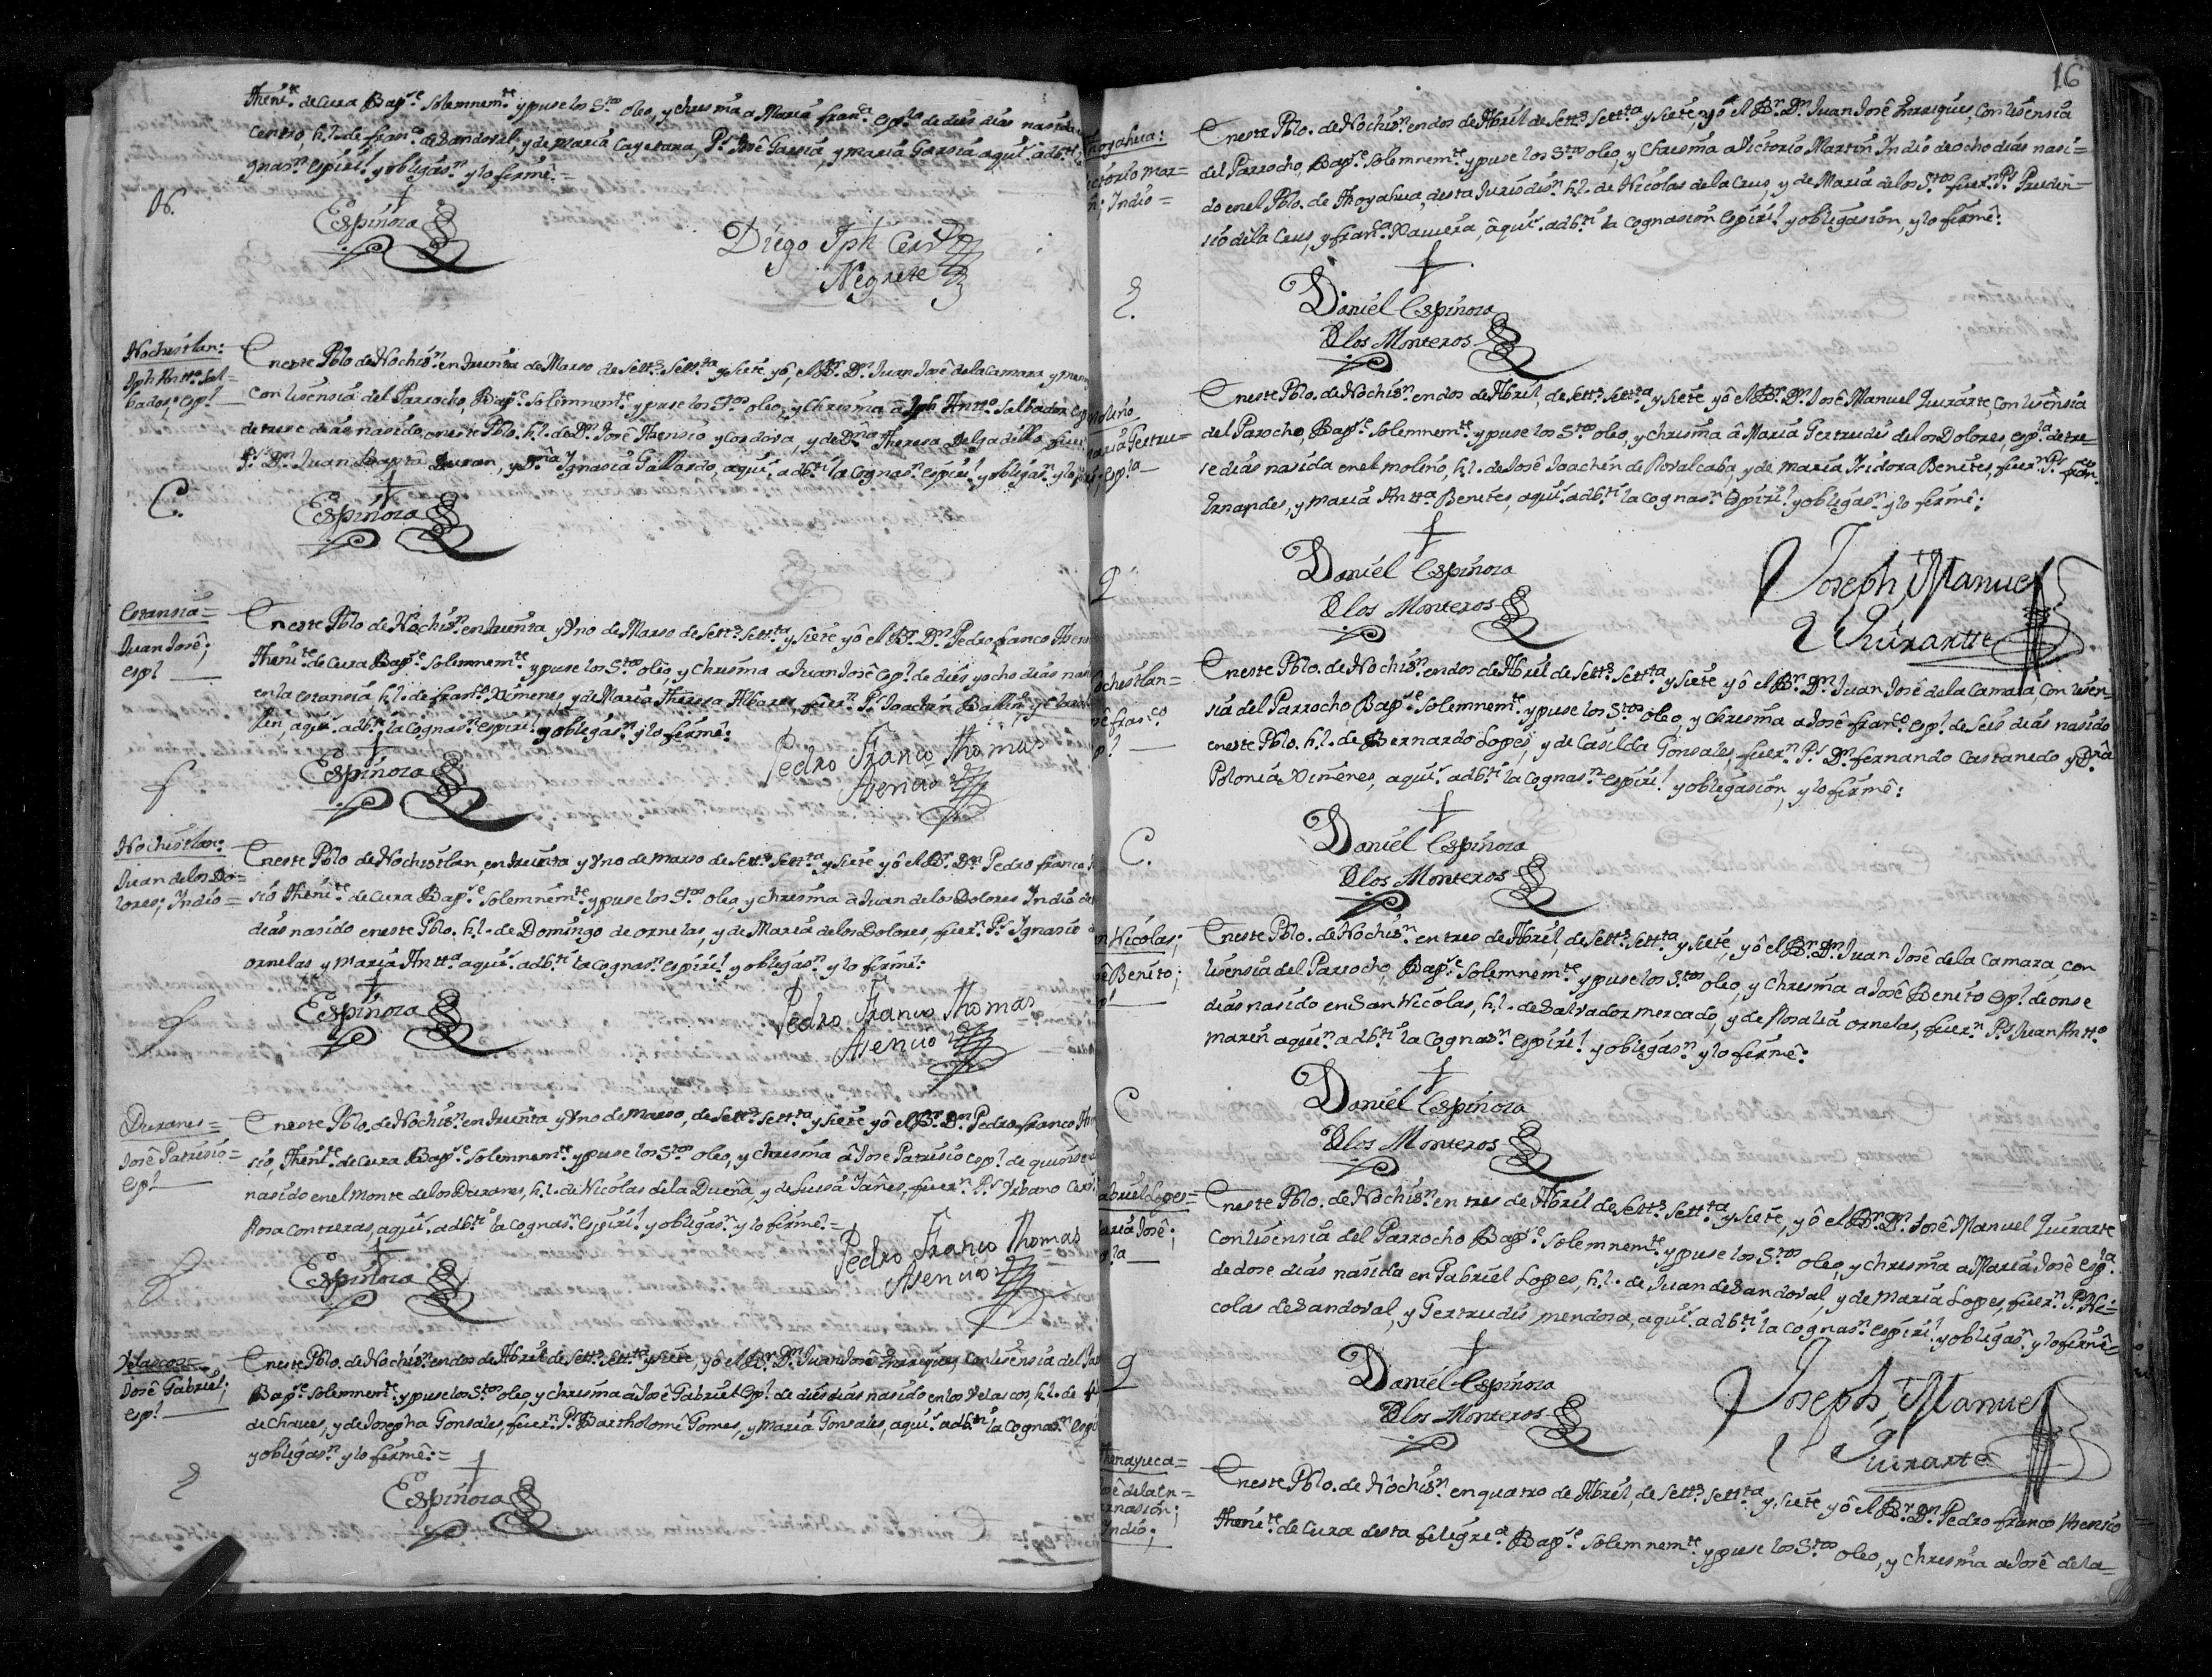 thenᵗᵉ. de Cura Bapᵉ. Solemnemᵗᵉ. y puse los Sᵗᵒˢ oleo, y chrisma a Maria franᶜᵃ. espˡᵃ de dies dias nasida
h.l. de franᶜᵒ. de Sandoval, y de Maria Cayetana, Pˢ. José Garsia, y Maria Garsia aquiˢ. adbᵗⁱ
gnasⁿ. espiriˡ. y obligasⁿ. y lo firmé.=
Espinoza
Diego Jph Cer
Negrete
Nochistlan:
Jph Anttᵒ. Sal=
bador; espˡ.
Eneste Pblo de Nochisⁿ. en treinta de Marso de settˢ. settᵗᵃ y siete yó, el Bʳ. Dⁿ. Juan José de la Camara
con lisensia del Parrocho, Bapᵉ. Solemnemᵗᵉ. y puse los Sᵗᵒˢ oleo, y Chrisma a Jph Anttᵒ. Salbador
de trese dias nasido eneste Pblo. h.l. de Dⁿ. José Asensio y Cordova, y de Dñᵃ Theresa Delgadillo
Pˢ. Dⁿ. Juan Bapᵗᵃ Duran, y Dñᵃ Ygnasia Gallardo, aquiˢ. adbᵗⁱ la Cognasⁿ. espiriˡ. y obligasⁿ. y lo
C.
Espinoza
Estansia=
Juan José;
espˡ
Eneste Pblo de Nochisⁿ. en treinta, y Uno de Marso de settˢ. settᵗᵃ y siete yó el Bʳ. Dⁿ. Pedro franco
thenᵗᵉ. de Cura Bapᵉ. Solemnemᵗᵉ. y puse los Sᵗᵒˢ oleo, y Chrisma a Juan José espˡ. de dies y ocho dias
en la estansia, h.l. de franᶜᵒ. Ximenes, y de Maria Theresa Albares, fuerⁿ. Pˢ. Joachin Ballin
aquiˢ. adbᵗⁱ. la Cognasⁿ. espiriˡ. y obligasⁿ. y lo firmé:
Espinoza
Pedro Franco Thomas
Asencio
Nochistlan:
Juan de los Do=
lores; Yndio=
Eneste Pblo de Nochistlan, en treinta y Uno de marso de settˢ. settᵗᵃ y siete yó el Bʳ. Dⁿ. Pedro franco
sió thenᵗᵉ. de Cura Bapᵉ. Solemnemᵗᵉ. y puse los Sᵗᵒˢ oleo, y chrisma a Juan de los Dolores Yndio
dias nasido eneste Pblo. h.l. de Domingo de ornelas, y de Maria de los Dolores, fuerⁿ. Pˢ Ygnasio
ornelas y Maria Anttᵃ. aquiˢ. adbᵗⁱ la cognasⁿ. espiriˡ. y obligasⁿ. y lo firmé:
Espinoza
Pedro Franco Thomas
Asencio
Duranes=
José Patrisio=
espˡ
Eneste Pblo. de Nochisⁿ. en treinta y Uno de marso, de settˢ. settᵗᵃ y siete yó el Bʳ. Dⁿ Pedro franco
sió, thenᵗᵉ. de Cura Bapᵉ. Solemnemᵗᵉ. y puse los Sᵗᵒˢ oleo, y chrisma a José Patrisio espˡ. de quinse
nasido en el Monte de los Duranes, h.l. de Nicolas de la Dueña, y de Luisa Yañes, fuerⁿ. Pˢ Urbano
Rosa Contreras, aquiˢ. adbᵗⁱ la Cognasⁿ. espiriˡ. y obligasⁿ. y lo firmé.=
Espinoza
Pedro Franco Thomas
Asencio
Velascos=
José Gabriel;
espˡ
Eneste Pblo. de Nochisⁿ. en dos de Abril de settˢ. settᵗᵃ y siete, yó el Bʳ. Dⁿ. Juan José Enrriques, con lisensia del
Bapᵉ. Solemnemᵗᵉ. y puse los Sᵗᵒˢ oleo, y chrisma a José Gabriel espˡ. de dies dias nasido en los Velascos, h.l. de
de Chaves, y de Josepha Gonsales, fuerⁿ. Pˢ Bartholomé Gomes, y Maria Gonsales, aquiˢ. adbᵗⁱ la cognasⁿ.
y obligasⁿ. y lo firmé:=
Espinoza
16
Thoyahua:
ictorio Mar=
n; Yndio=
Eneste Pblo. de Nochisⁿ. en dos de Abril de settˢ. settᵗᵃ y siete, yó el Bʳ. Dⁿ. Juan José Enrriques, con lisensia
del Parrocho, Bapᵉ. Solemnemᵗᵉ. y puse los Sᵗᵒˢ oleo, y Chrisma a Victorio Martin Yndio de ocho dias nasi=
do en el Pblo. de Thoyahua, desta Jurisdisⁿ h.l. de Nicolas de la Crus, y de Maria de los Sᵗᵒˢ fuerⁿ. Pˢ Pruden=
sio de la Crus, y franᶜᵃ. Xaviera, aquiˢ. adbᵗⁱ la Cognasion espiriˡ. y obligasion, y lo firmé:
Daniel Espinoza
Dlos Monteros
Moleno
aria Gertru=
espˡᵃ
Eneste Pblo. de Nochisⁿ. en dos de Abril, de settˢ. settᵗᵃ y siete yó el Bʳ. Dⁿ. José Manuel Quirarte con lisensia
del Parocho, Bapᵉ. Solemnemᵗᵉ. y puse los Sᵗᵒˢ oleo, y chrisma a Maria Gertrudis de los Dolores, espˡᵃ. de tre=
se dias nasida en el moleno, h.l. de José Joachin de Rovalcaba, y de Maria Ysidora Benites, fuerⁿ. Pˢ franᶜᵒ.
Ernandes, y Maria Anttᵃ. Benites, aquiˢ. adbᵗⁱ la cognasⁿ espiriˡ. y obligasⁿ. y lo firmé:
Daniel Espinoza
Dlos Monteros
Joseph Manuel
Quirartte
ochistlan=
sé franᶜᵒ
pˡ
Eneste Pblo. de Nochisⁿ. en dos de Abril de settˢ. settᵗᵃ y siete yó el Bʳ. Dⁿ. Juan José de la Camara, con lisen=
sia del Parrocho Bapᵉ. Solemnemᵗᵉ. y puse los Sᵗᵒˢ oleo, y chrisma a José franᶜᵒ. espˡ. de seis dias nasido
eneste Pblo. h.l. de Bernardo Lopes, y de Casilda Gonsales, fuerⁿ. Pˢ Dⁿ. fernando Castanedo y Dñᵃ.
Polonia Ximenes, aquiˢ. adbᵗⁱ la cognasⁿ. espiriˡ. y obligasion, y lo firmé:
C.
Daniel Espinoza
Dlos Monteros
n Nicolas;
sé Benito;
pˡ
Eneste Pblo. de Nochisⁿ. en tres de Abril, de settˢ. settᵗᵃ y siete, yó el Bʳ. Dⁿ. Juan José de la Camara con
lisensia del Parrocho, Bapᵉ. Solemnemᵗᵉ. y puse los Sᵗᵒˢ oleo, y chrisma a José Benito espˡ. de onse
dias nasido en San Nicolas, h.l. de Salvador mercado, y de Rosalia ornelas, fuerⁿ. Pˢ Juan Anttᵒ.
marin aquieⁿ. adbᵗⁱ la Cognasⁿ. espiriˡ. y obligasⁿ. y lo firmé:
C
Daniel Espinoza
Dlos Monteros
abriel Lopes=
aria José;
pˡᵃ
Eneste Pblo. de Nochisⁿ. en tres de Abril de settˢ. settᵗᵃ y siete, yó el Bʳ. Dⁿ. José Manuel Quirarte
con lisensia del Parrocho Bapᵉ. Solemnemᵗᵉ. y puse los Sᵗᵒˢ oleo, y chrisma a Maria José espˡᵃ.
de dose dias nasida en Gabriel Lopes, h.l. de Juan de Sandoval, y de Maria Lopes, fuerⁿ. Pˢ Ni=
colas de Sandoval, y Gertrudis mendosa, aquiˢ. adbᵗⁱ la cognasⁿ. espiriˡ. y obligasⁿ. y lo firmé=
Daniel Espinoza
Dlos Monteros
Joseph Manuel
Quirarte
Thenayuca=
osé de la En=
rnasion;
Yndio;
Eneste Pblo. de Nochisⁿ. en quatro de Abril, de settˢ. settᵗᵃ y siete yó el Bʳ. Dⁿ Pedro franco Asensio
thenᵗᵉ. de Cura desta feligreᵃ. Bapᵉ. Solemnemᵗᵉ. y puse los Sᵗᵒˢ oleo, y chrisma a José de la=